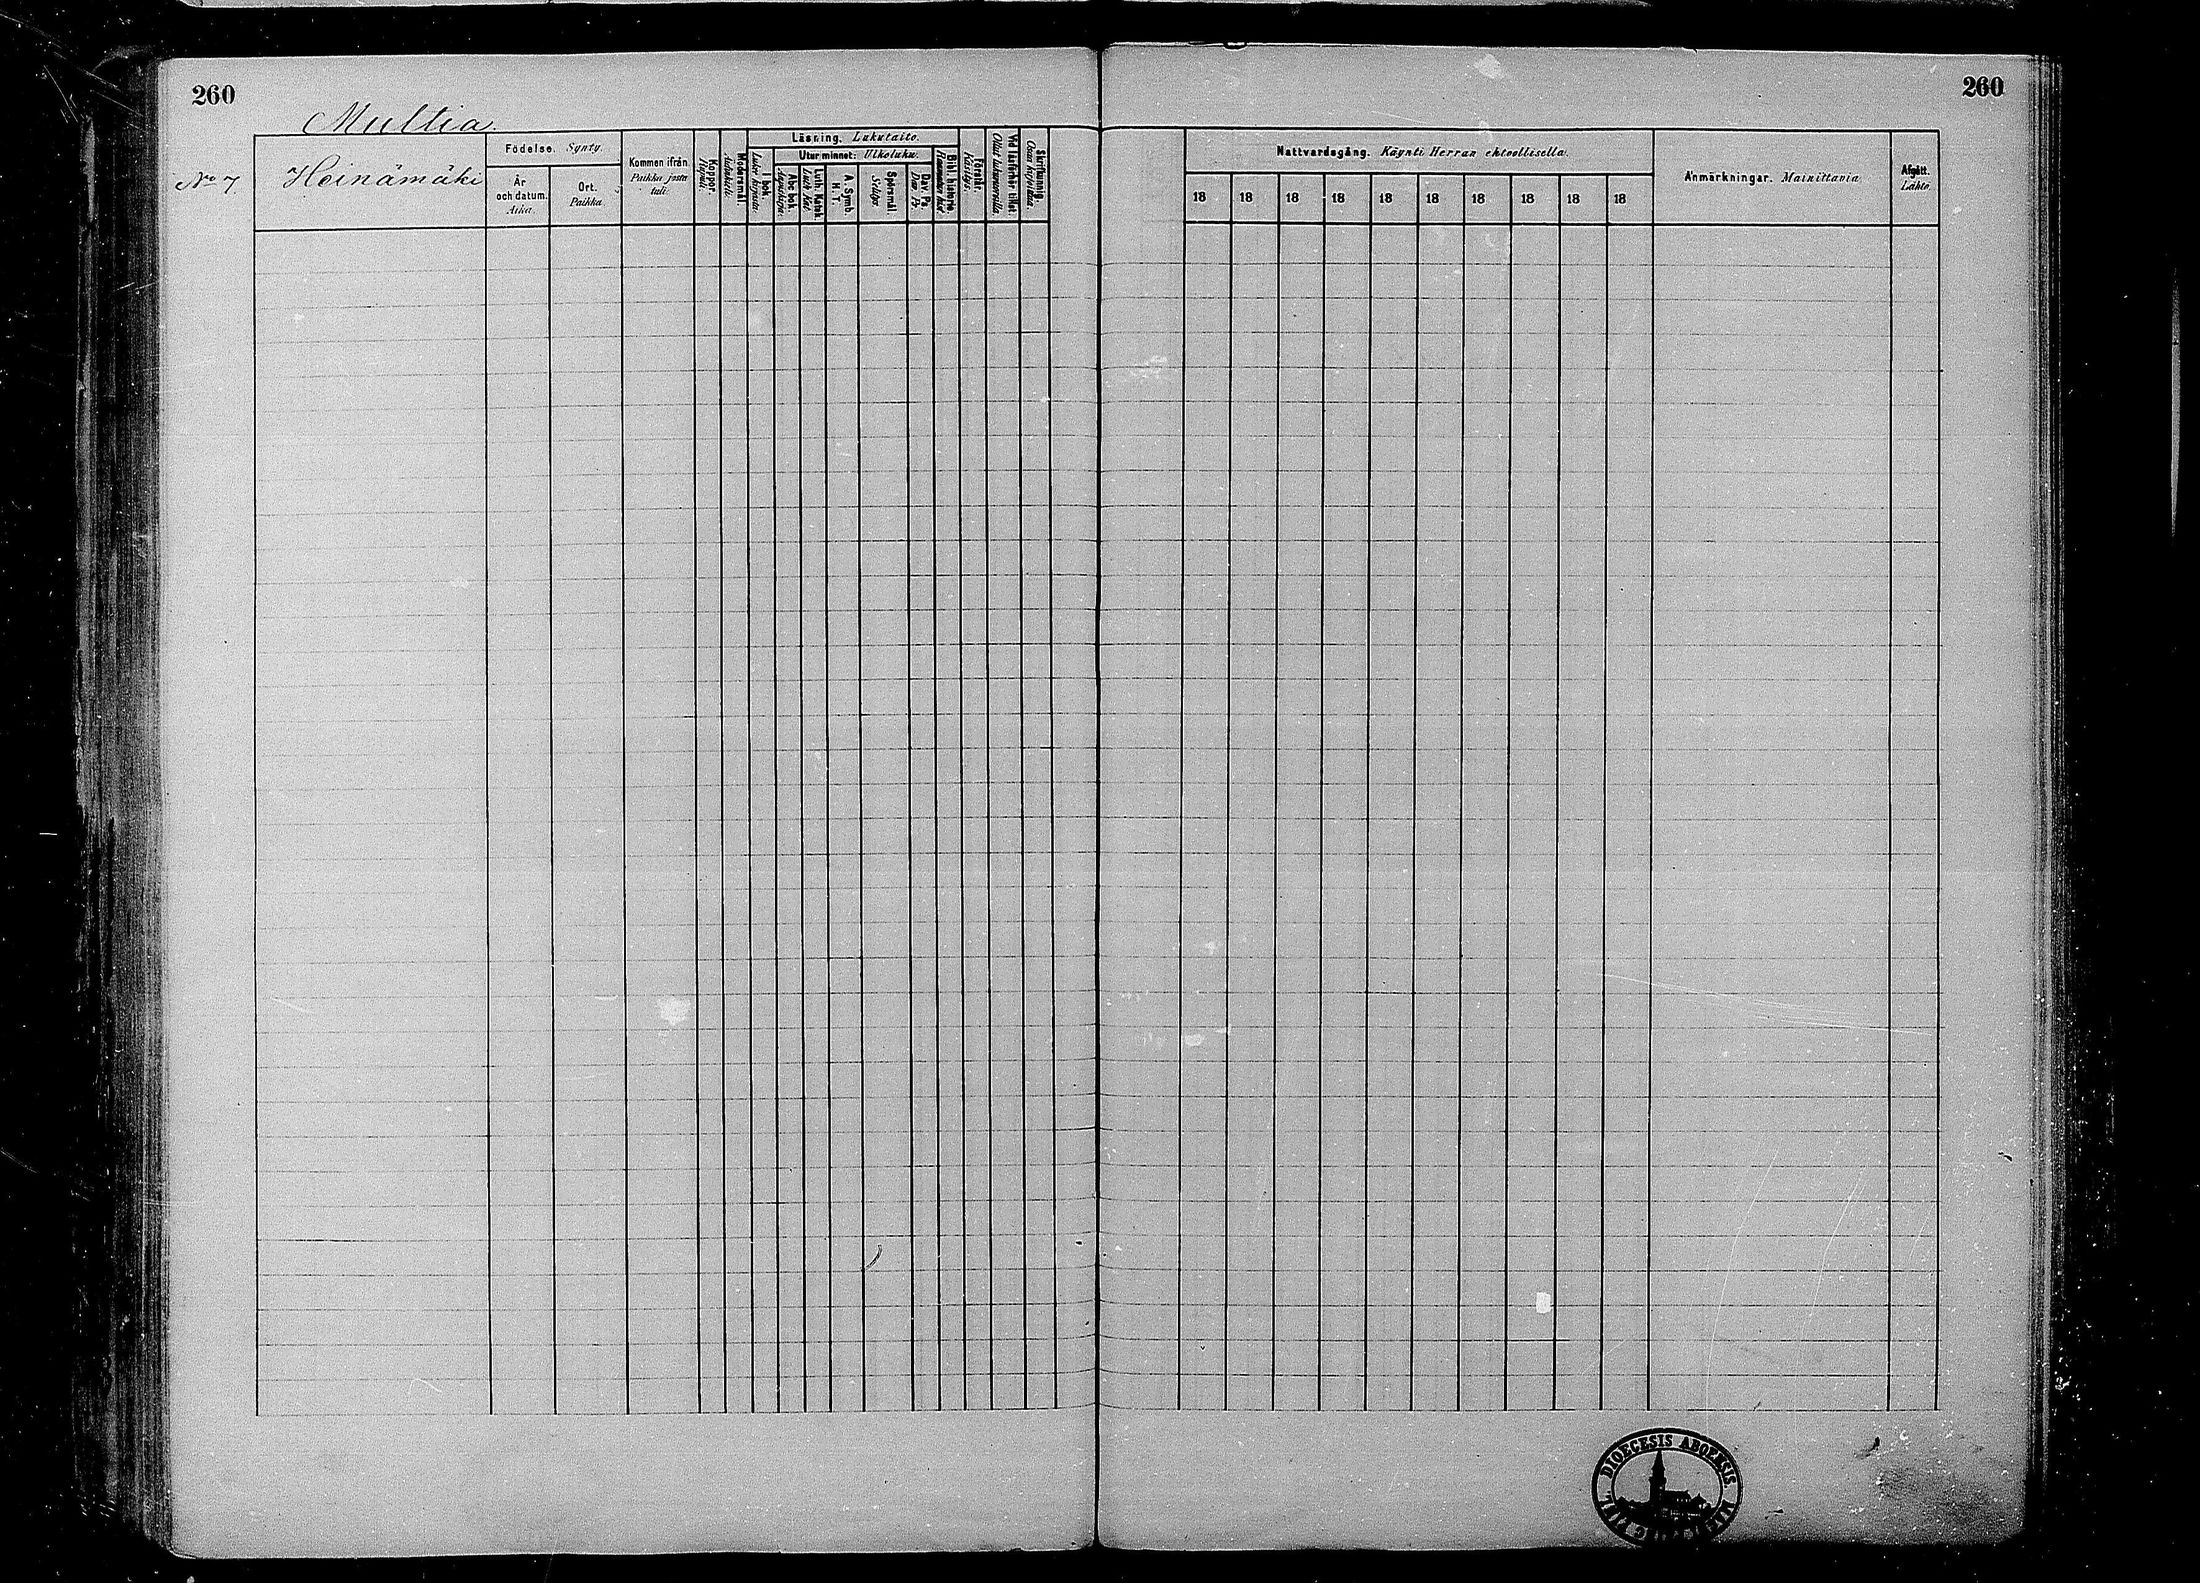 260
260
Multia.
No 7
Heinämäki
Födelse. Synty.
År och datum. Aika.
Ort. Paikka.
Kommen ifrån. Paikka josta tuli.
Koppor. Rupuli.
Modersmål. Äidinkieli.
Läsning. Lukutaito.
I bok.
Utur minnet: Ulkoluku.
Abc bok.
Luth. Katek. Luth. Kat.
A. Symb. H. T.
Spörsmål. Selitys.
Dav. Ps. Dav. Ps.
Bibl. historie
Förenkr. Käsitys.
Ollut lukusijoilla
Skriftlunnig. Osaa kirjoittaa
Nattvardsgång. Käynti Herran ehtoollisella.
18 18 18 18 18 18 18 18 18 18
Anmärkningar. Mainittavia
Afgått. Lähtö.
DIOECESIS ABOENSIS